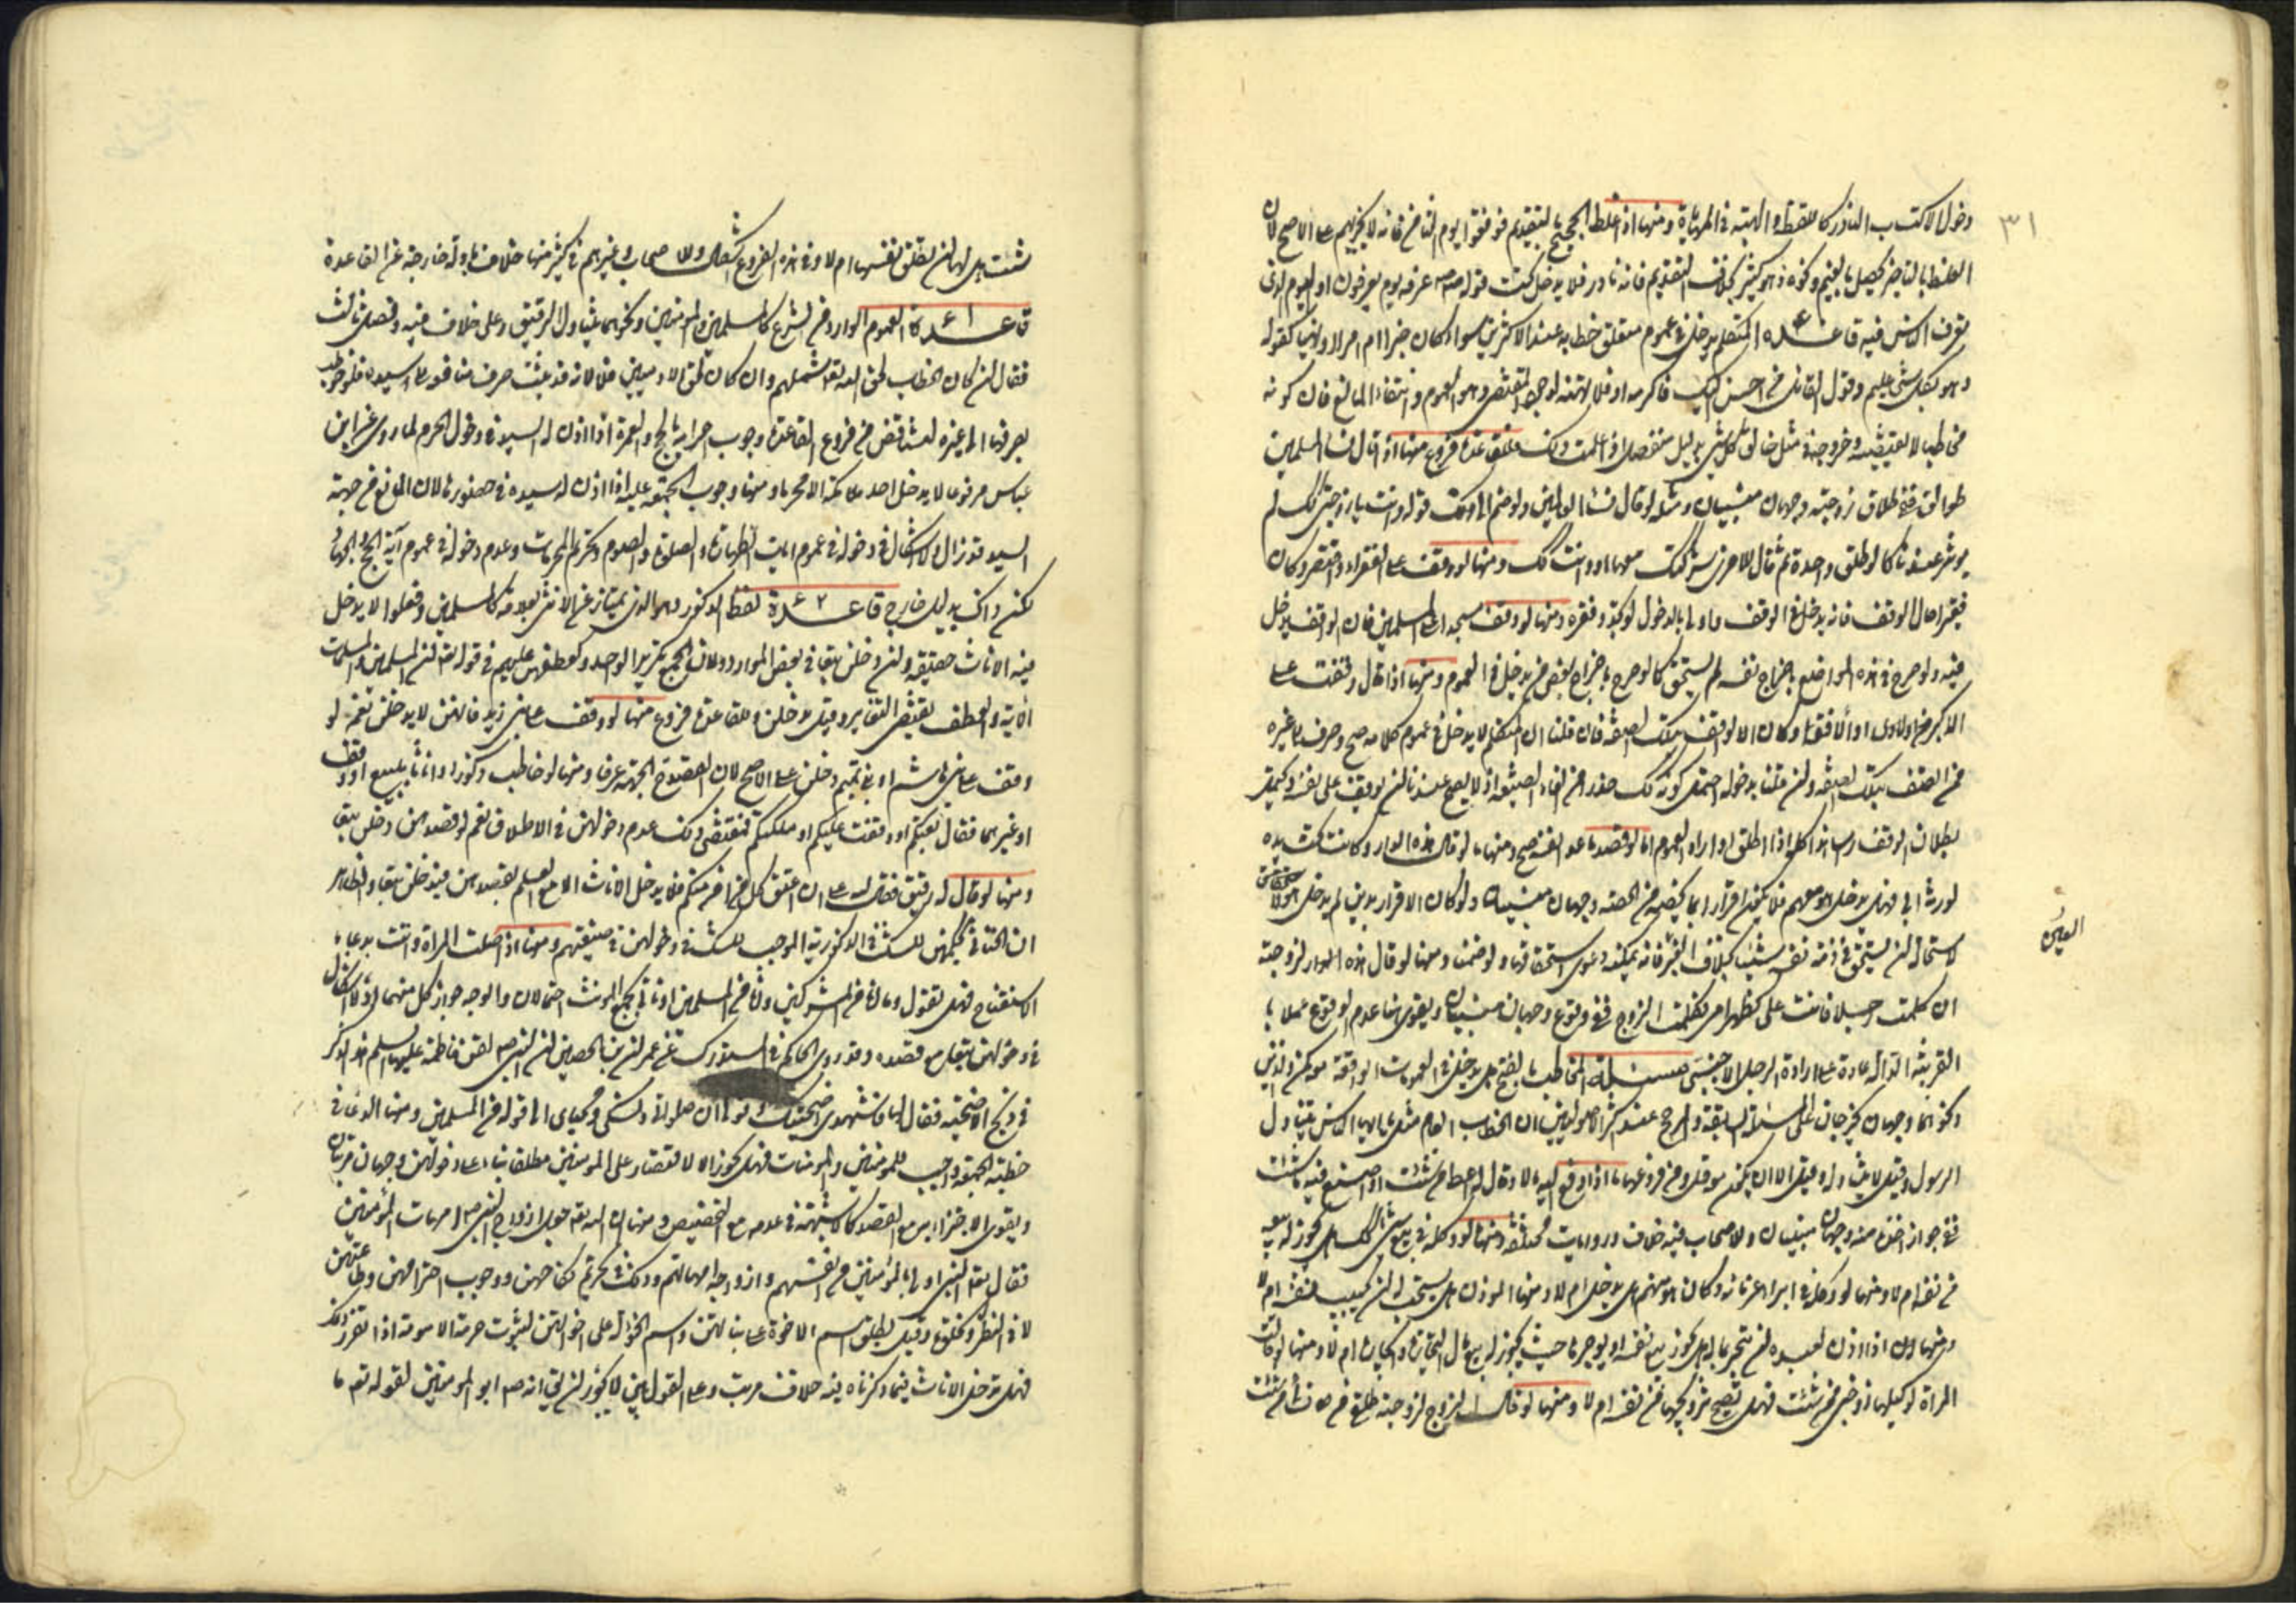 ٣١
دخول الاكتساب النادر كاللقطة والهبة في المهاياة ومنها اذا غلط الحجيج بالتقديم فوقفوا يوم الثامن فانه لا يجزيهم على الاصح لان
الغلط بالتاخير يحصل بالغيم ونحوه وهو كثير بخلاف التقديم فانه نادر فلا يدخل تحت قوله صم عرفة يوم يعرفون او اليوم الذي
يعرف الناس فيه قاعدة المتكلم يدخل في عموم متعلق خطابه عند الاكثرين سواء كان خبرا ام امرا ام نهيا كقوله
وهو بكل شيء عليم وقول القائل من احسن اليك فاكرمه او فلا تهنه لوجود المقتضي وهو العموم وانتفاء المانع فان كونه
مخاطبا لا يقتضيه وخروجه في مثل خالق كل شيء بدليل منفصل اذا علمت ذلك فللقاعدة فروع منها اذا قال نساء المسلمين
طوالق ففي طلاق زوجته وجهان مبنيان ومثله لو قال نساء العالمين ولو ضم الى ذلك قوله وانت يا زوجتي لم
يؤثر عندنا كما لو طلق واحدة ثم قال للاخرى شركتك معها او وانت كك ومنها لو وقف على الفقراء وافتقر وكان
فقيرا حال الوقف فانه يدخل في الوقف واولى بالدخول لو تجدد فقره ومنها لو وقف مسجدا على المسلمين فان الواقف يدخل
فيه ولو صرح في هذه المواضع باخراج نفسه لم يستحق كما لو صرح باخراج بعض من يدخل في العموم ومنها اذا قال وقفت على
الاكبر من اولادي او الافقه وكان الواقف بتلك الصفة فان قلنا ان المتكلم لا يدخل في عموم كلامه صح وصرف الى غيره
ممن اتصف بتلك الصفة وان قلنا بدخوله احتمل كونه كك حذرا من الغاء الصيغة اذ لا يصح عندنا ان يوقف على نفسه ويحتمل
بطلان الوقف راسا هذا كله اذا اطلق او اراد العموم اما لو قصد ما عدا نفسه صح ومنها ما لو قال هذه الدار وكانت تحت يده
لورثة ابي فهل يدخل هو معهم فلا يكون اقرارا بما يخصه من الحصة وجهان مبنيان ولو كان الاقرار بدين لم يدخل هو
لاستحالة ان يستحق في ذمة نفسه شيئا بخلاف العين فانه يمكنه دعوى استحقاقها ولو ضمنا ومنها لو قال هذه الدار لزوجته
العين
ان كلمت رجلا فانت علي كظهر امي فكلمت الزوج ففي وقوعه وجهان مبنيان ويقوى هنا عدم الوقوع عملا با
القرينة الدالة عادة على ارادة الرجل الاجنبي مسئلة المخاطب بالفتح هل يدخل في العمومات الواقعة معه كمن والذين
ونحوهما وجهان يخرجان على المسئلة السابقة والمرجح عند اكثر الاصوليين ان الخطاب العام مثل يا ايها الناس يتناول
الرسول وقيل لا يتناوله وقيل الا ان يكون معه قل ومن فروعها ما اذا دفع اليه مالا وقال له اعط من شئت او اصنع فيه ما شئت
ففي جواز اخذه منه وجهان مبنيان وللاصحاب فيه خلاف وروايات مختلفة ومنها لو وكله في بيع شيء هل يجوز له بيعه
من نفسه ام لا ومنها لو وكله في ابراء غرمائه وكان هو منهم هل يدخل ام لا ومنها المؤذن هل يستحب له ان يجيب نفسه ام لا
ومنها اذا اذن لعبده ان يتجر بماله هل يجوز بيع نفسه او يوجرها حيث يجوز له بيع مال التجارة وايجاره ام لا ومنها لو قالت
المراة لوكيلها زوجني ممن شئت فهل يصح تزويجها من نفسه ام لا ومنها لو قال الزوج لزوجته طلقي من نسائي من شئت
شئت هل لها ان تطلق نفسها ام لا وفي هذه الفروع اشكال وللاصحاب وغيرهم في كثير منها خلاف بادلة خارجة عن القاعدة
قاعدة ٤١ العموم الوارد من الشرع كالمسلمين والمؤمنين ونحوهما يتناول الرقيق وعلى خلاف فيه وفصل ثالث
فقال ان كان الخطاب لحق الله تعالى شملهم وان كان لحق الادميين فلا لانه قد يثبت صرف منافعه الى سيده فلو خوطب
بصرفها الى غيره لتناقض ومن فروع القاعدة وجوب احرامه بالحج والعمرة اذا اذن له السيد في دخول الحرم لما روي عن ابن
عباس مرفوعا لا يدخل احد مكة الا محرما ومنها وجوب الجمعة عليه اذا اذن له سيده في حضورها لان المانع من جهة
السيد قد زال ولا اشكال في دخوله في عموم ايات الطهارة والصلوة والصوم وتحريم المحرمات وعدم دخوله في عموم آية الحج والجهاد
لكن ذاك بدليل خارج قاعدة ٤٢ لفظ الذكور وهو الذي يمتاز عن الاناث بعلامة كالمسلمين وفعلوا لا يدخل
فيه الاناث حقيقة وان دخلن تبعا في بعض الموارد ولان الجمع تكرير الواحد ولعطفهن عليهم في قوله تعالى ان المسلمين والمسلمات
الاية والعطف يقتضي التغاير وقيل يدخلن وللقاعدة فروع منها لو وقف على بني زيد فانهن لا يدخلن نعم لو
وقف على بني هاشم او بني تميم دخلن على الاصح لان القصد الجهة عرفا ومنها لو خاطب ذكورا واناثا ببيع او وقف
او غيرهما فقال بعتكم او وقفت عليكم او ملكتكم فمقتضى ذلك عدم دخولهن في الاطلاق نعم لو قصدهن دخلن تبعا
ومنها لو قال له رقيق فقال لله علي ان اعتق كل من امر منكم فلا يدخل الاناث الا مع العلم بقصدهن فيدخلن تبعا والظاهر
ان الخناثى كحكمهن للشك في الذكورية الموجب للشك في دخولهن في صيغتهم ومنها اذا صلت المراة واتت بدعاء
الاستفتاح فهل تقول وما انا من المشركين وانا من المسلمين او تاتي بجمع المؤنث احتمالان والوجه جواز كل منهما اذ لا اشكال
في دخولهن تبعا مع قصده وقد روى الحاكم في المستدرك عن عمران بن الحصين ان النبي صم لقن فاطمة عليها السلم هذا الذكر
في ذبح الاضحية فقال لها قومي فاشهدي اضحيتك وقولي ان صلوتي ونسكي ومحياي الى قوله من المسلمين ومنها الدعاء في
خطبة الجمعة واجب للمؤمنين والمؤمنات فهل يجوز الاقتصار على المؤمنين مطلقا بناء على دخولهن وجهان مرتبان
ويقوى الاجزاء مع القصد كما لا شبهة في عدمه مع التخصيص ومنها ان الله تعالى جعل ازواج النبي صم امهات المؤمنين
فقال تعالى النبي اولى بالمؤمنين من انفسهم وازواجه امهاتهم وذلك في تحريم نكاحهن ووجوب احترامهن وطاعتهن
لا في النظر والخلوة وقيل يطلق اسم الاخوة على بناتهن واسم الخؤلة على اخوانهن لثبوت حرمة الامومة اذا تقرر ذلك
فهل تدخل الاناث فيما ذكرناه فيه خلاف مرتب وعلى القولين لا يجوز ان يق انه صم ابو المؤمنين لقوله تعم ما